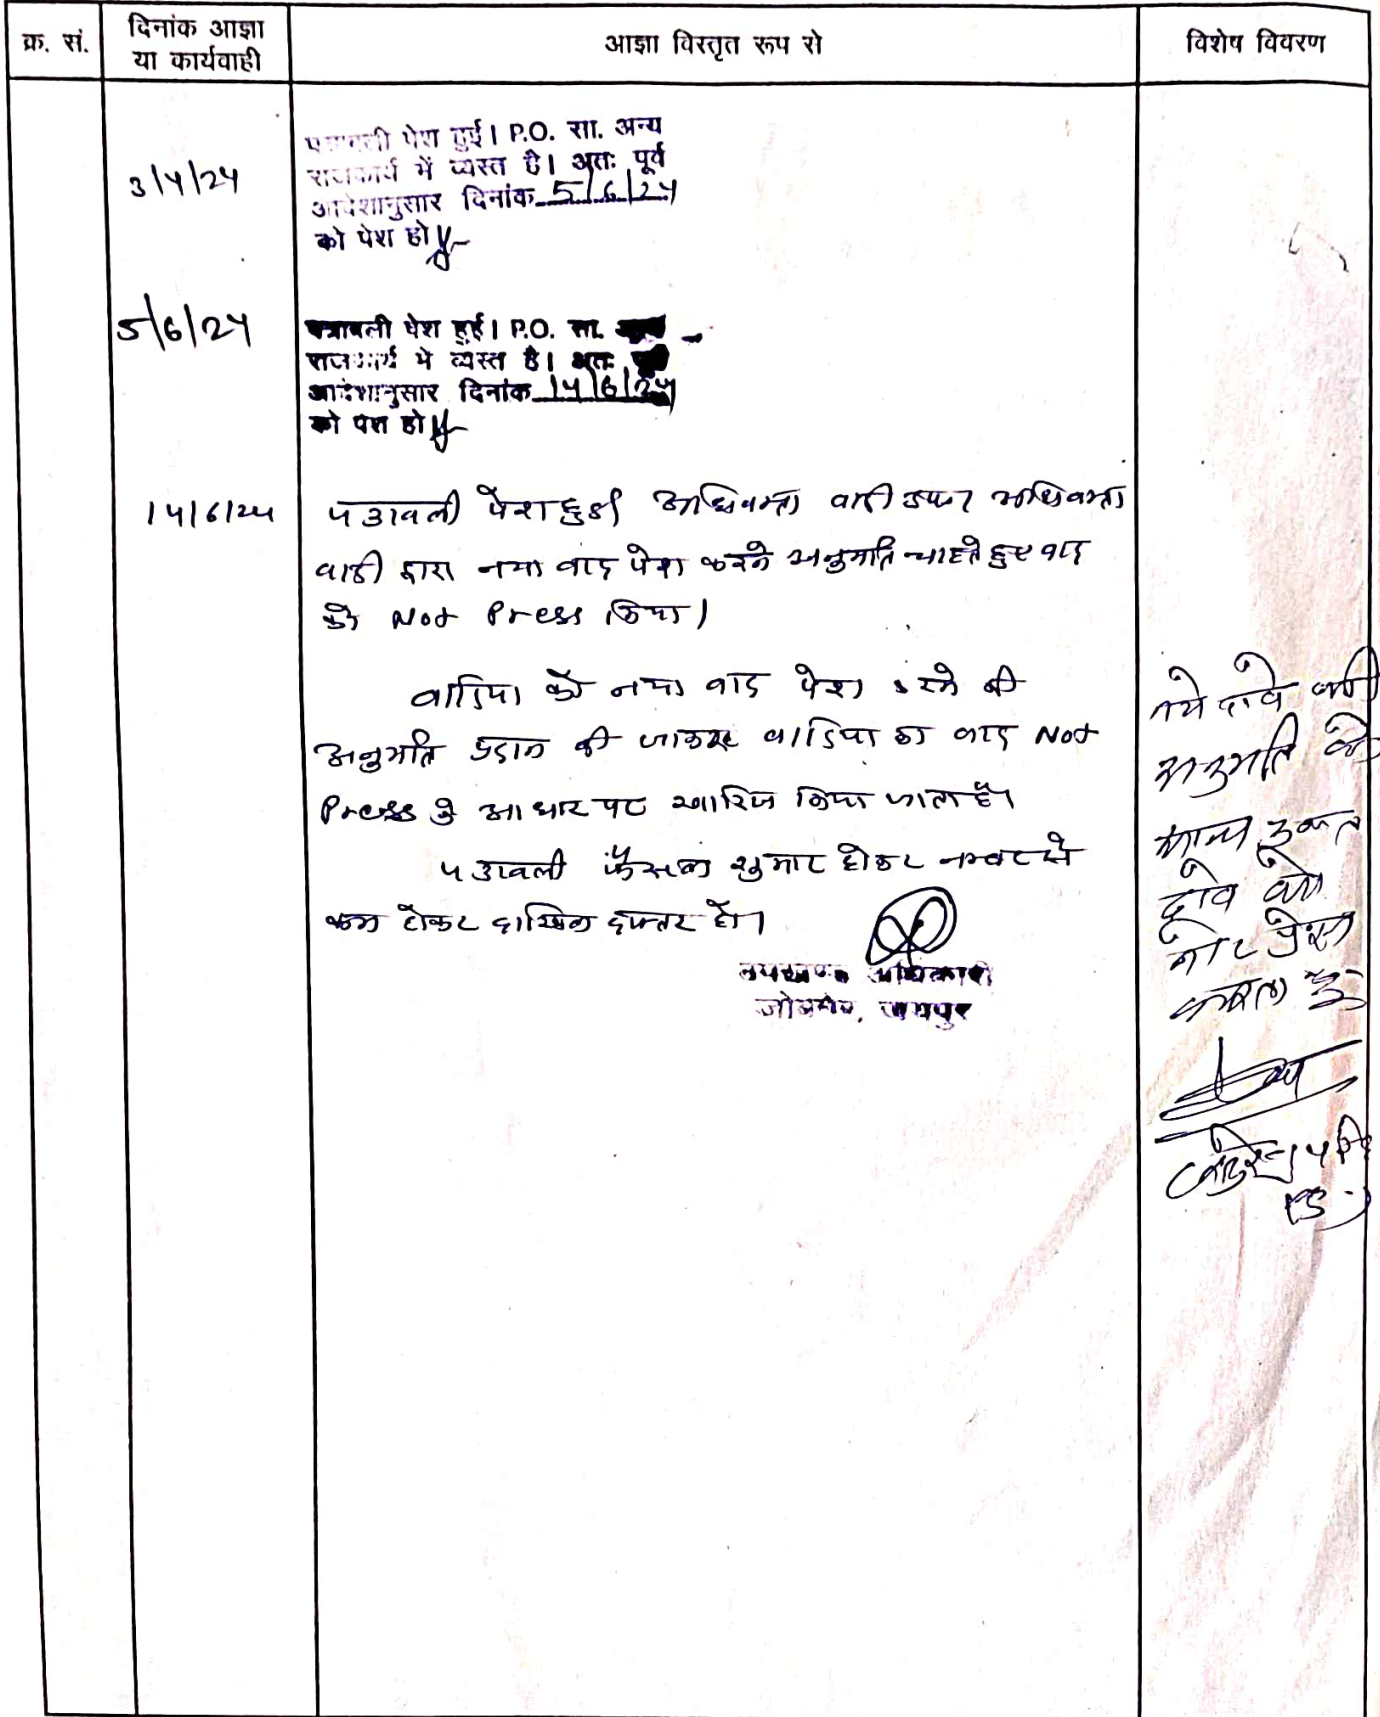 क्र. सं.
दिनांक आज्ञा
या कार्यवाही
आज्ञा विस्तृत रूप से
विशेष विवरण
3/4/24
पत्रावली पेश हुई। P.O. सा. अन्य
राजकार्य में व्यस्त है। अतः पूर्व
आदेशानुसार दिनांक 5/6/24
को पेश हो
5/6/24
पत्रावली पेश हुई। P.O. सा.
राजकार्य में व्यस्त है। अतः
आदेशानुसार दिनांक 14/6/24
को पेश हो
14/6/24
पत्रावली पेश हुई अधिवक्ता वादी उप० अधिवक्ता
वादी द्वारा नया वाद पेश करने अनुमति चाहते हुए वाद
को Not Press किया।
वादिया को नया वाद पेश करने की
अनुमति प्रदान की जाकर वादिया का वाद Not
Press के आधार पर खारिज किया जाता है।
पत्रावली फैसल शुमार होकर नम्बर से
कम होकर दाखिल दफ्तर हो।
उपखण्ड अधिकारी
जोबनेर, जयपुर
नये दावे की
अनुमति के
साथ उक्त
दावे को
नोट प्रेस
करता है